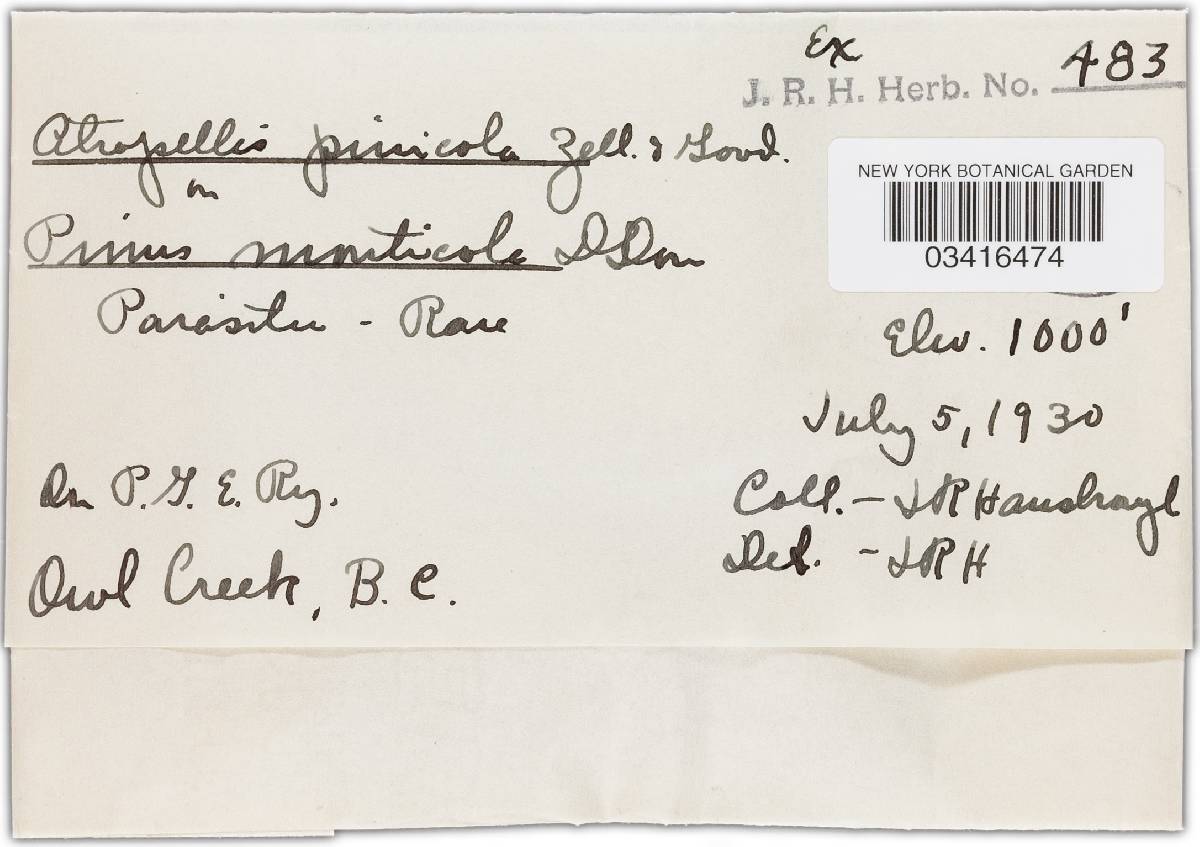 Ex
J. R. H. Herb. No. 483
Atropellis pinicola Zell. & Good.
on
Pinus monticola D Don
Parasitic - Rare
NEW YORK BOTANICAL GARDEN
03416474
Elev. 1000'
July 5, 1930
On P. G. E. Ry.
Owl Creek, B. C.
Coll. - JR Hansbrough
Det. - JRH